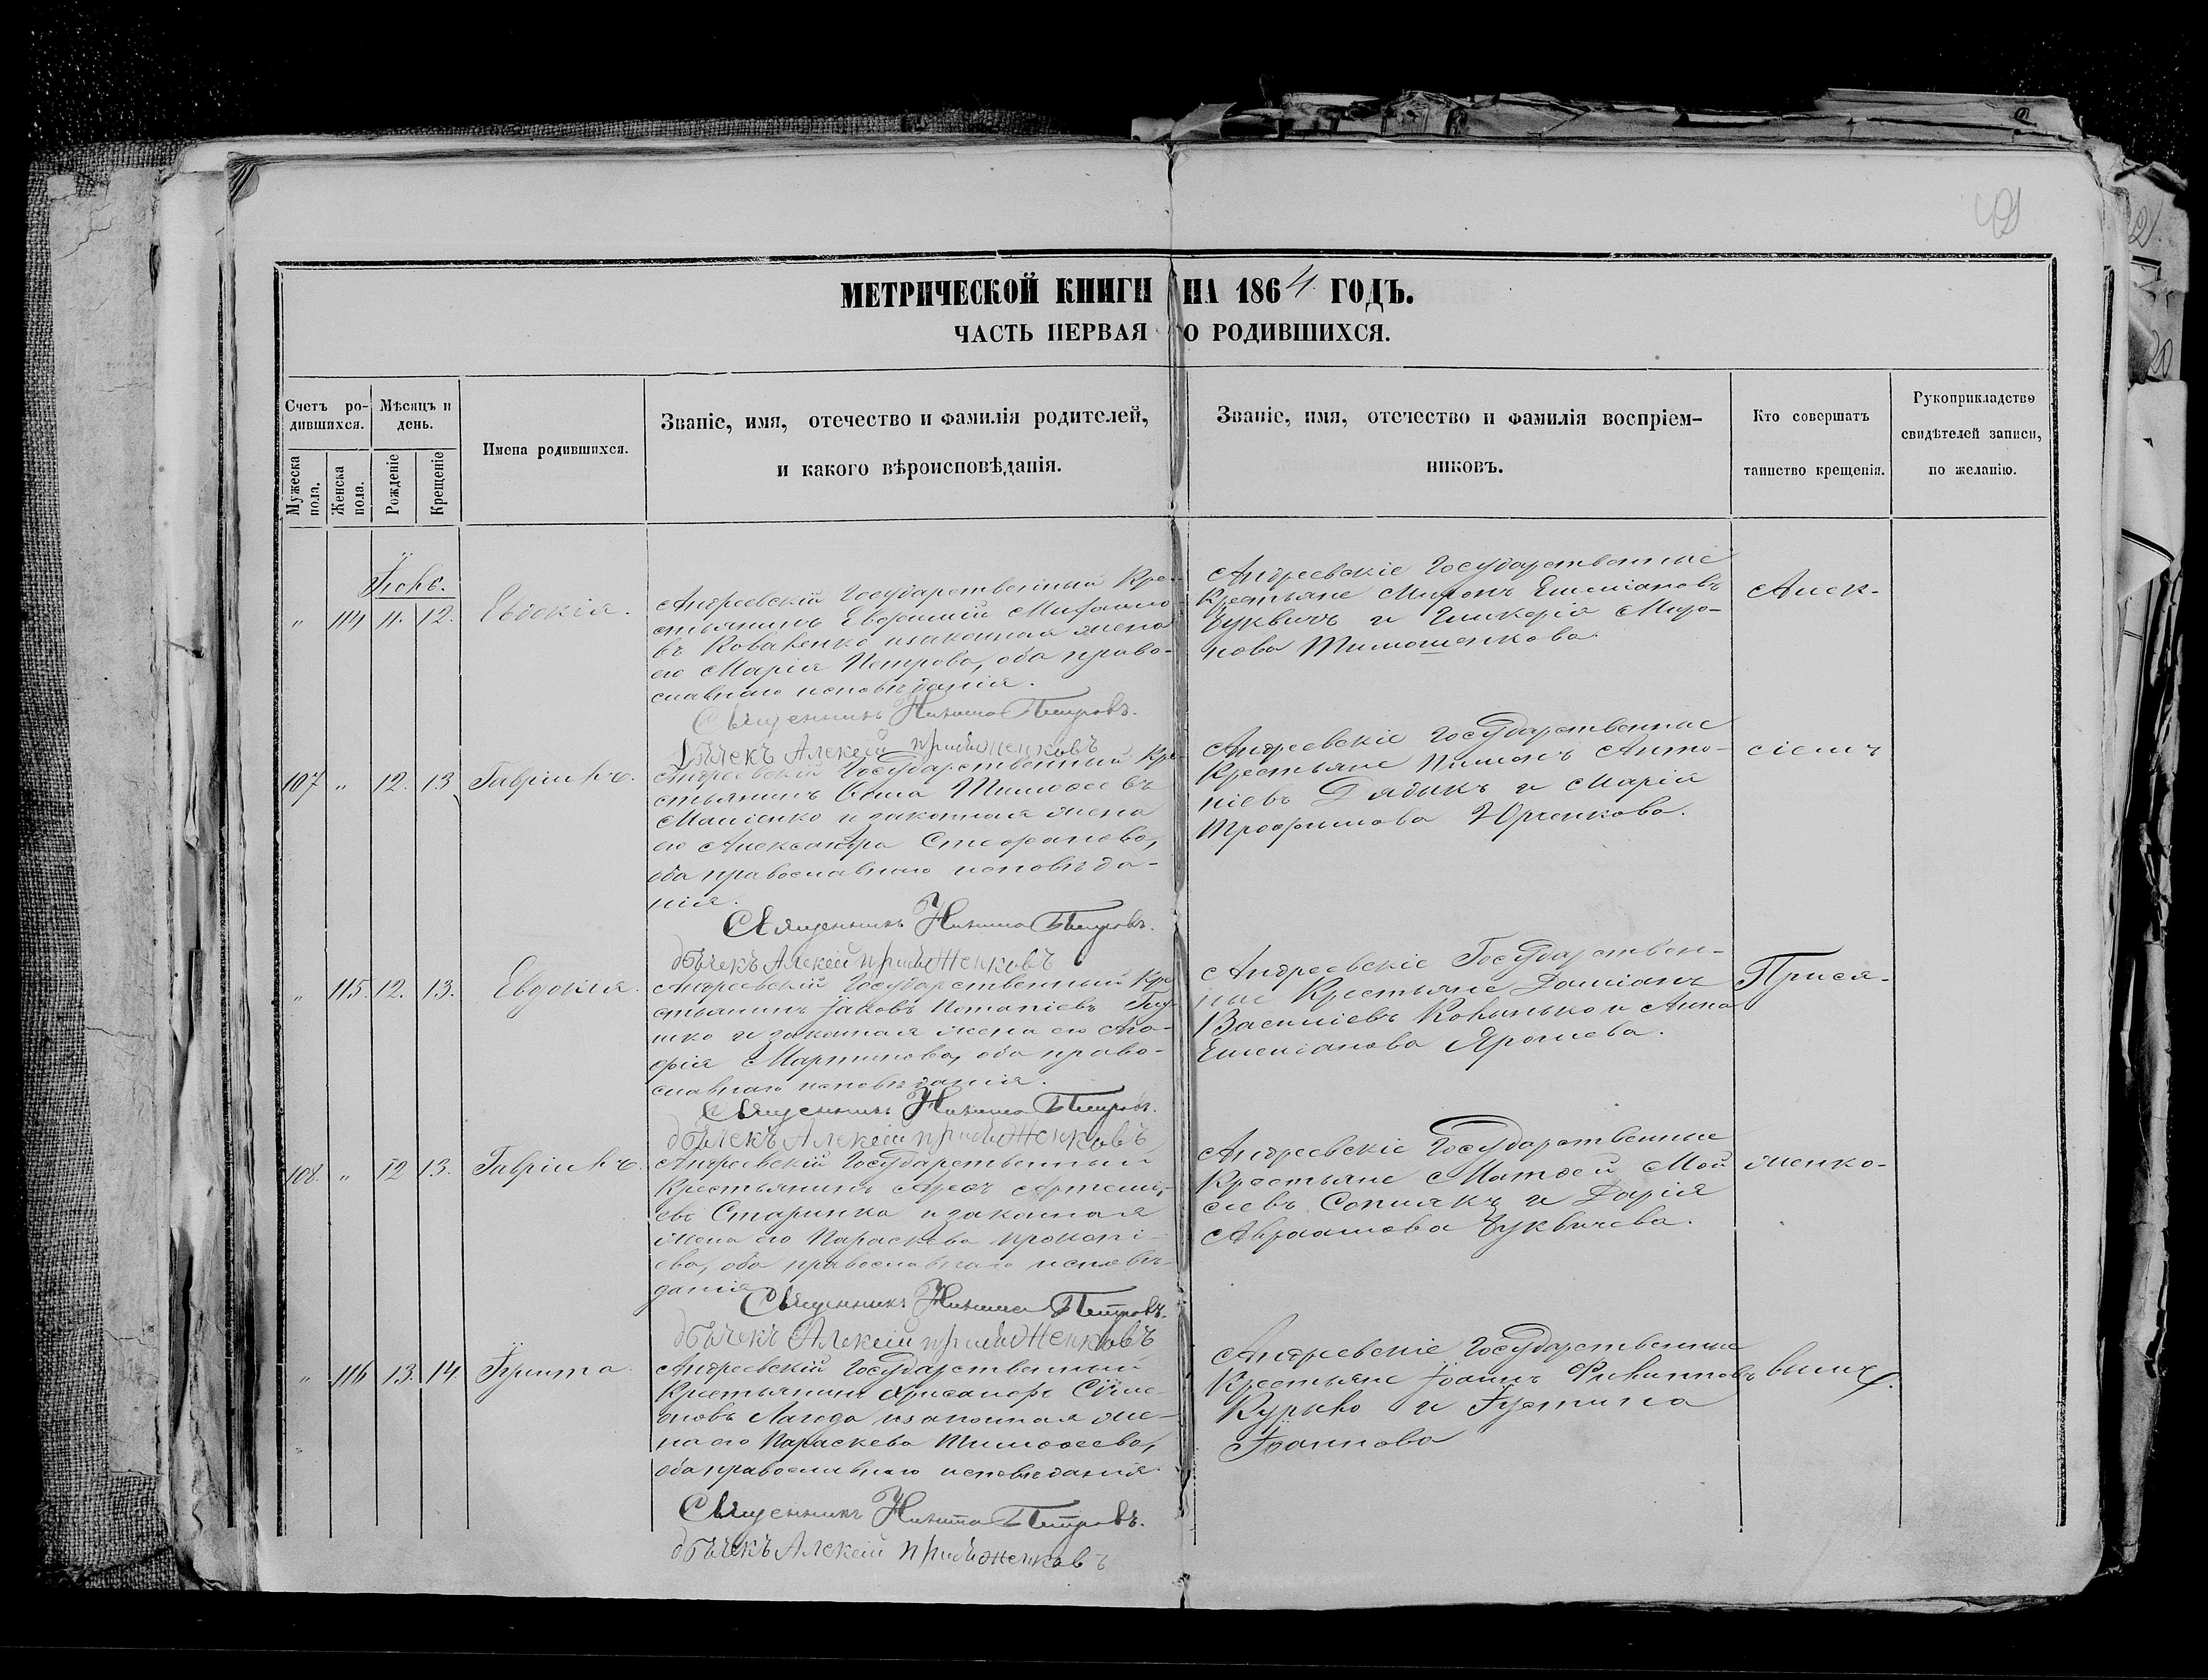 МЕТРИЧЕСКОЙ КНИГИ НА 1864 ГОДЪ.
ЧАСТЬ ПЕРВАЯ О РОДИВШИХСЯ.
Счетъ ро-
дившихся.
Мужеска пола.
Женска пола.
Мѣсяцъ и
день.
Рожденіе
Крещеніе
Имена родившихся.
Званіе, имя, отечество и фамилія родителей,
и какого вѣроисповѣданія.
Званіе, имя, отечество и фамилія воспріем-
никовъ.
Кто совершатъ
таинство крещенія.
Рукоприкладство
свидѣтелей записи,
по желанію.
" 114 11. 12. Евдокія.
Андреевскій Государственный Кре-
стьянинъ
его Марія Петрова, оба право-
славнаго исповѣданія.
Священникъ Никита Петровъ.
Дьячекъ Алексей
Андреевскіе Государственные
Крестьяне Миронъ Емеліановъ
Буквичъ и Гликерія Миро-
нова Тимошенкова.
Алек-
107 " 12. 13 Гавріилъ.
Андреевскій Государственный Кре-
стьянинъ Тимофеевъ
и законная жена
его Александра Стефанова,
оба православнаго исповѣда-
нія.
Священникъ Никита Петровъ.
дьячекъ Алексей
Андреевскіе Государственные
Крестьяне Пименъ Анто-
ніевъ Дядикъ и Марія
Трофимова Юрченкова.
сіемъ
" 115. 12. 13. Евдокія.
Андреевскій Государственный Кре-
стьянинъ Іаковъ Потапіевъ
и законная жена его Ага-
фія Мартинова, оба право-
славнаго исповѣданія.
Священникъ Никита Петровъ.
дьячекъ Алексей
Андреевскіе Государствен-
ные Крестьяне Даміанъ
Василіевъ и Анна
Емеліанова Ярошева.
Прися-
108. " 12 13. Гавріилъ.
Андреевскій Государственный
Крестьянинъ Артемі-
евъ Старинка и законная
жена его Параскева Прокопі-
ева, оба православнаго исповѣ-
данія
Священникъ Никита Петровъ.
дьячекъ Алексей
Андреевскіе Государственные
Крестьяне Матфей Мой
сіевъ Сопилкъ и Дарія
Авраамова Буквичева.
женко-
" 116 13. 14. Іулитта.
Андреевскій Государственный
Крестьянинъ Хрисанфъ Симе-
оновъ Лагода и законная же-
на его Параскева Тимофеева,
оба православнаго исповѣданія.
Священникъ Никита Петровъ.
дьячекъ Алексей
Андреевскіе Государственные
Крестьяне Іоаннъ Филипповъ
и Іустина
Іоаннова
вымъ.